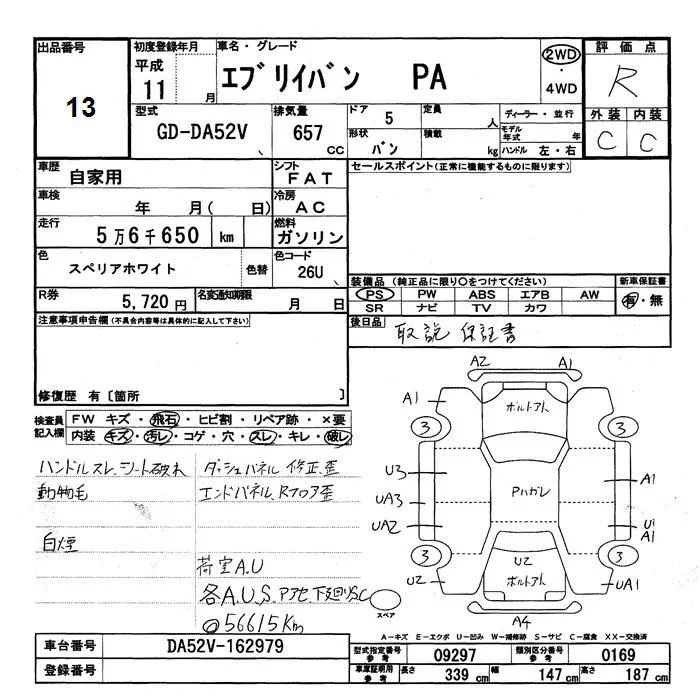 出品番号 初度登録年月 車名・グレード 評価点
13 平成 11 月 エブリイバン PA 2WD・4WD R
型式 GD-DA52V 排気量 657 CC ドア 5 定員 人 ディーラー・並行 外装 内装
形状 バン 積載 kg モデル年式 年 ハンドル 左・右 C C
車歴 自家用 シフト FAT セールスポイント(正常に機能するものに限ります)
車検 年 月( 日) 冷房 AC
走行 5万6千650 km 燃料 ガソリン
色 スペリアホワイト 色替 色コード 26U
装備品(純正品に限り○をつけてください) 新車保証書
R券 5,720円 名変通知期限 月 日 PS PW ABS エアB AW 有・無
SR ナビ TV カワ
注意事項申告欄(不具合内容等は具体的に記入して下さい) 後日品 取説 保証書
修復歴 有〔箇所 〕
検査員記入欄 FW キズ・飛石・ヒビ割・リペア跡・×要
内装 キズ・汚レ・コゲ・穴・スレ・キレ・破レ
ハンドルスレ、シート破れ ダッシュパネル修正歪
動物毛 エンドパネル、Rフロア歪
白煙
荷室A.U
各A.U.S.
下廻りS.C
@56615Km
A2 A1
A1 ボルトアト
3 3
U3 A1
UA3 Pハガレ
UA2 U1
A1
3 U2 3
U2 ボルトアト UA1
スペア A4
A-キズ E-エクボ U-凹み W-補修跡 S-サビ C-腐食 XX-交換済
車台番号 DA52V-162979 型式指定番号 参考 09297 類別区分番号 参考 0169
登録番号 車庫証明用 参考 長さ 339 cm 幅 147 cm 高さ 187 cm